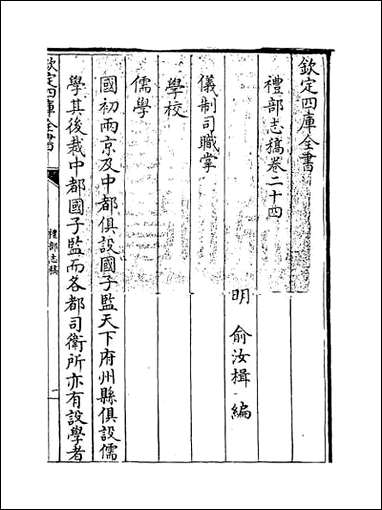 欽定四庫全書
禮部志稿卷二十四
明 俞汝楫 編
儀制司職掌
學校
儒學
國初兩京及中都俱設國子監天下府州縣俱設儒
學其後裁中都國子監而各都司衛所亦有設學者
欽定四庫全書
禮部志稿
一